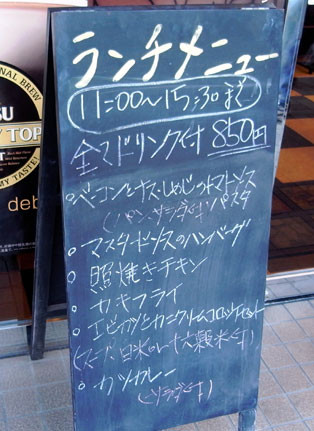 ランチメニュー
11:00～15:30まで
全てドリンク付 850円
ベーコンとナス・しめじのトマトソース
(パン、サラダ付) パスタ
マスタードソースのハンバーグ
照焼きチキン
カキフライ
エビカツとカニクリームコロッケセット
白米or十六穀米付)
カツカレー
(サラダ付)
NAL BREW
SU
TOP
MY TASTE!
deb